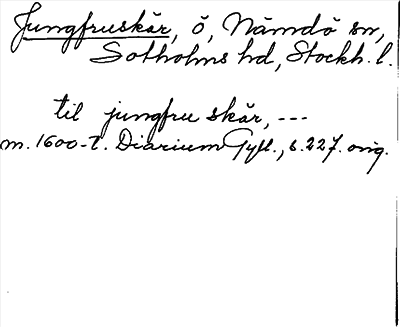 Jungfruskär, ö, Nämdö sn,
Sotholms hd, Stockh. l.
til jungfru skär, ---
m. 1600-t. Diarium Gyll., s. 227. orig.